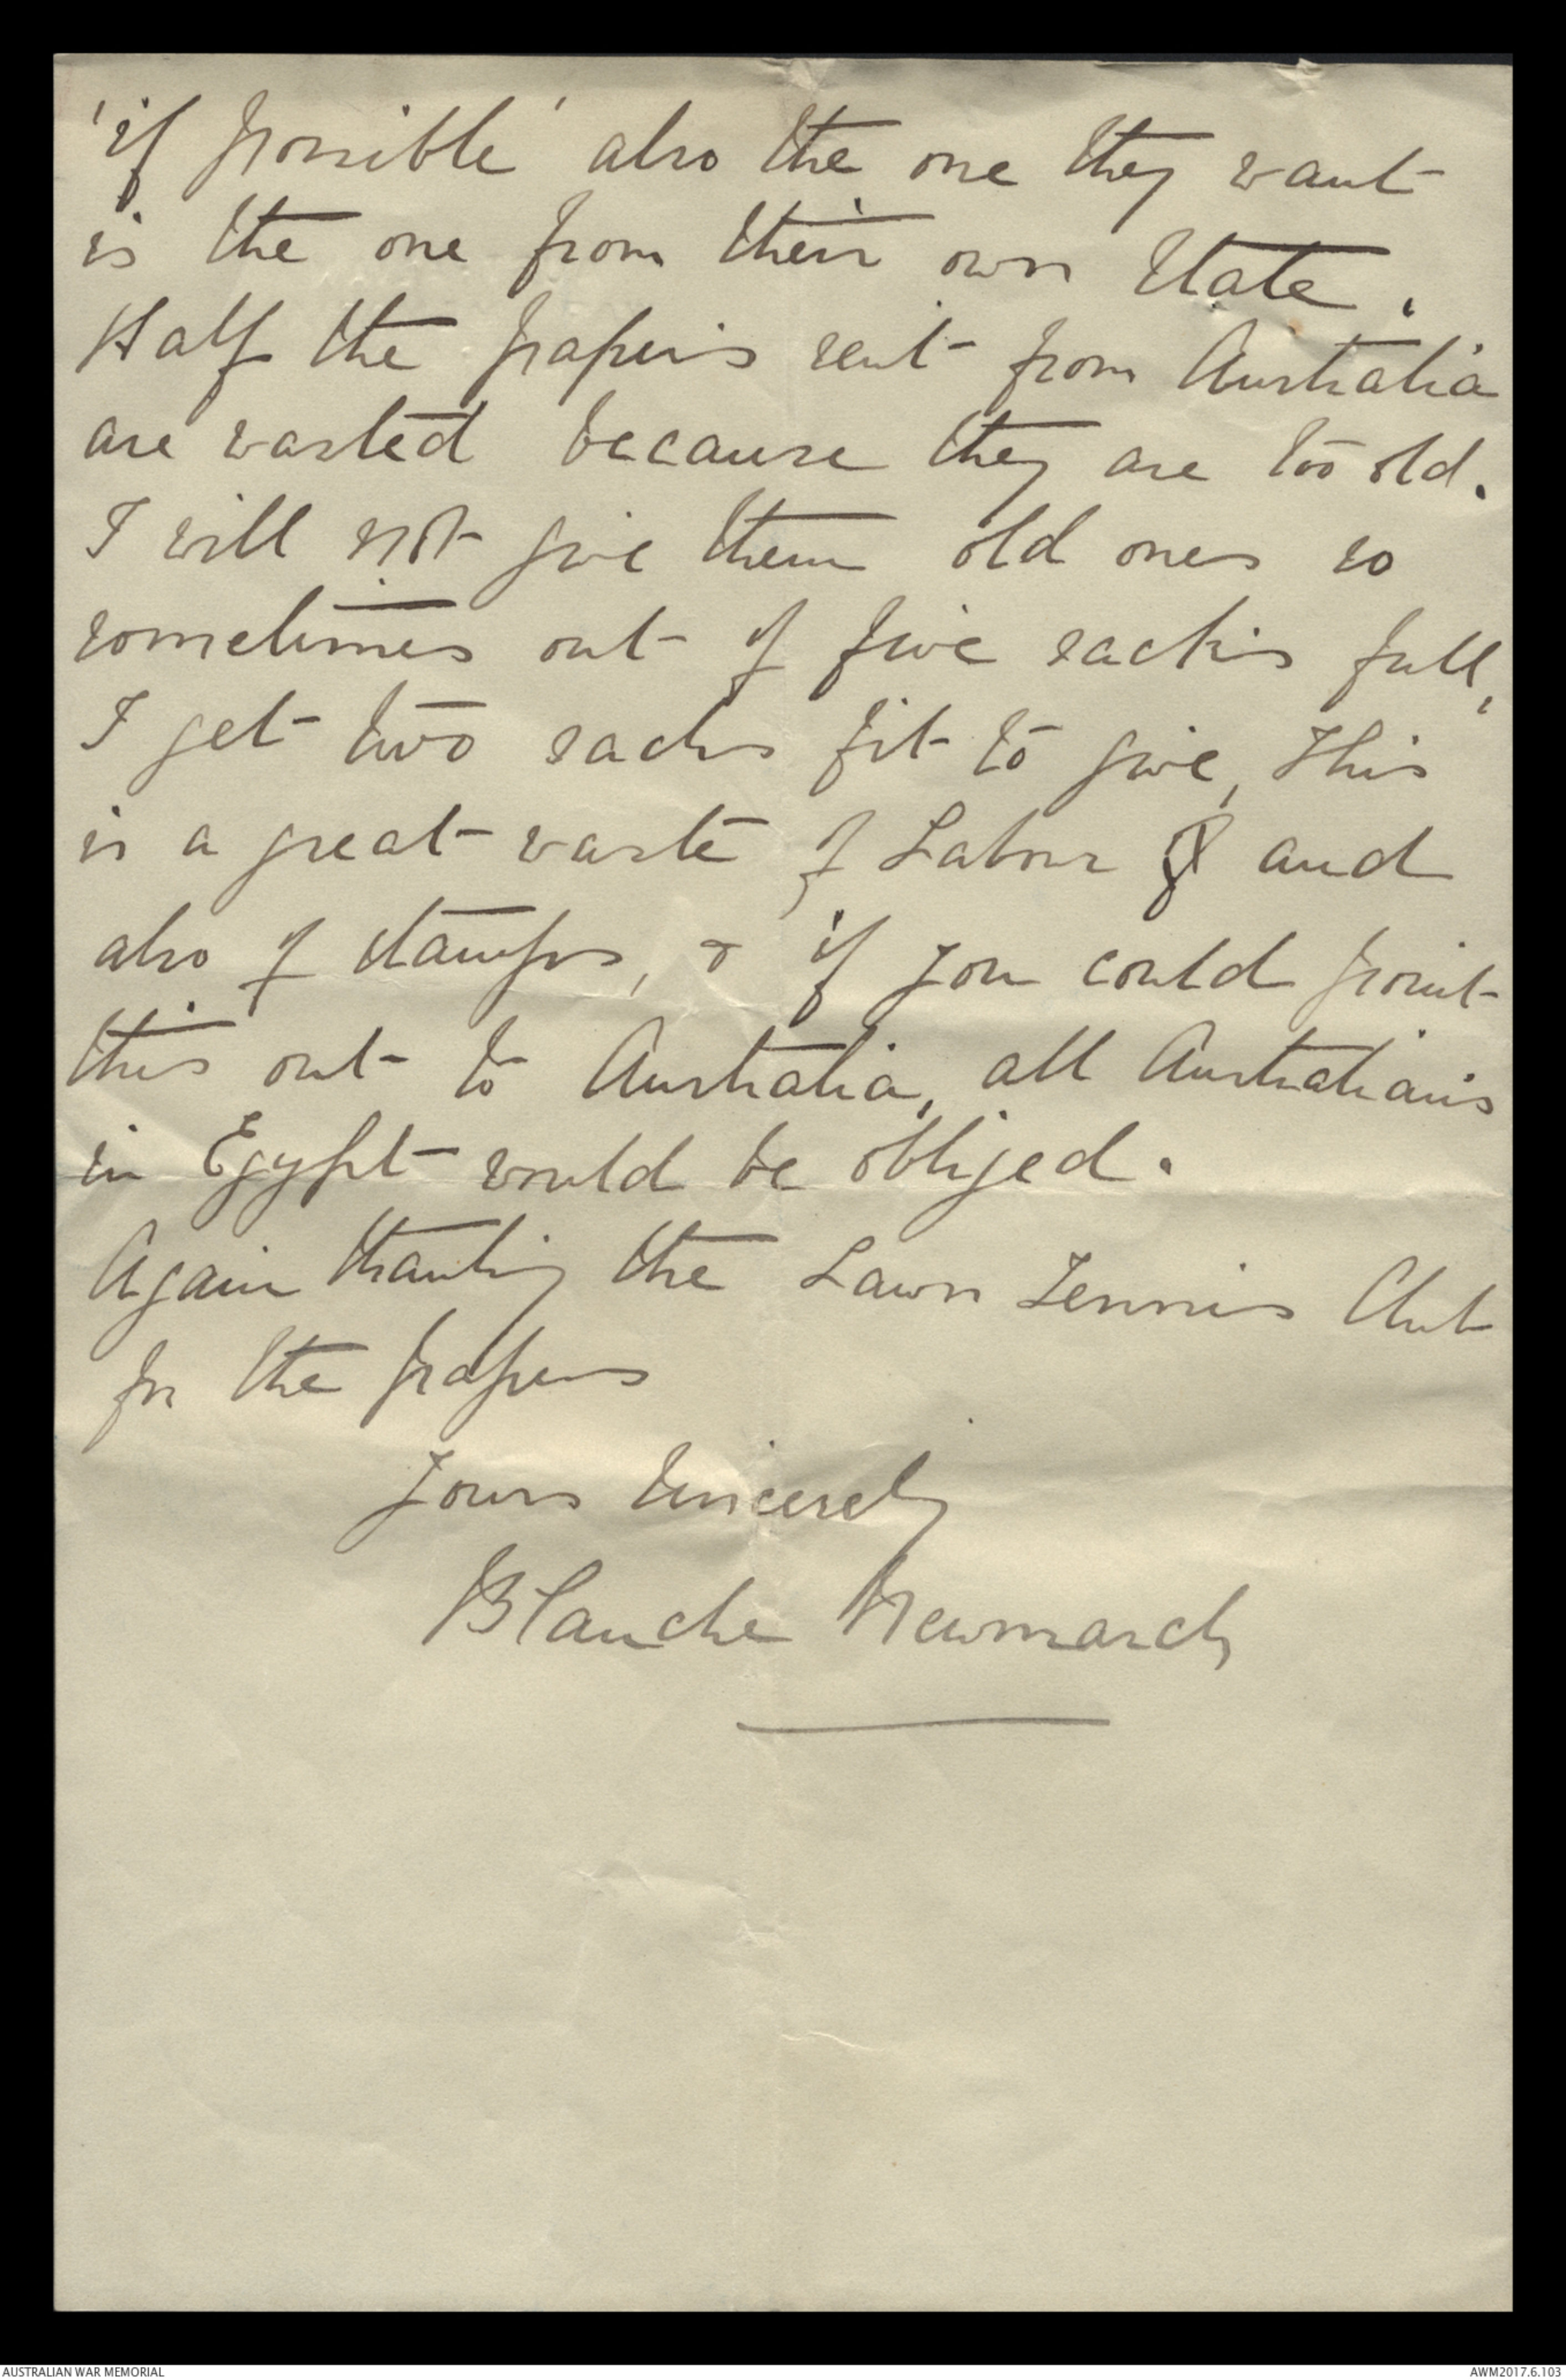 'if possible' also the one they want
is the one from their own State.
Half the papers sent from Australia
are wasted because they are too old.
I will not give them old ones so
sometimes out of five sacks full,
I get two sacks fit to give, This
is a great waste of Labour and
also of stamps, & if you could point
this out to Australia, all Australians
in Egypt would be obliged.
Again thanking the Lawn Tennis Club
for the papers
Yours Sincerely
Blanche Newmarch
AUSTRALIAN WAR MEMORIAL
AWM2017.6.103